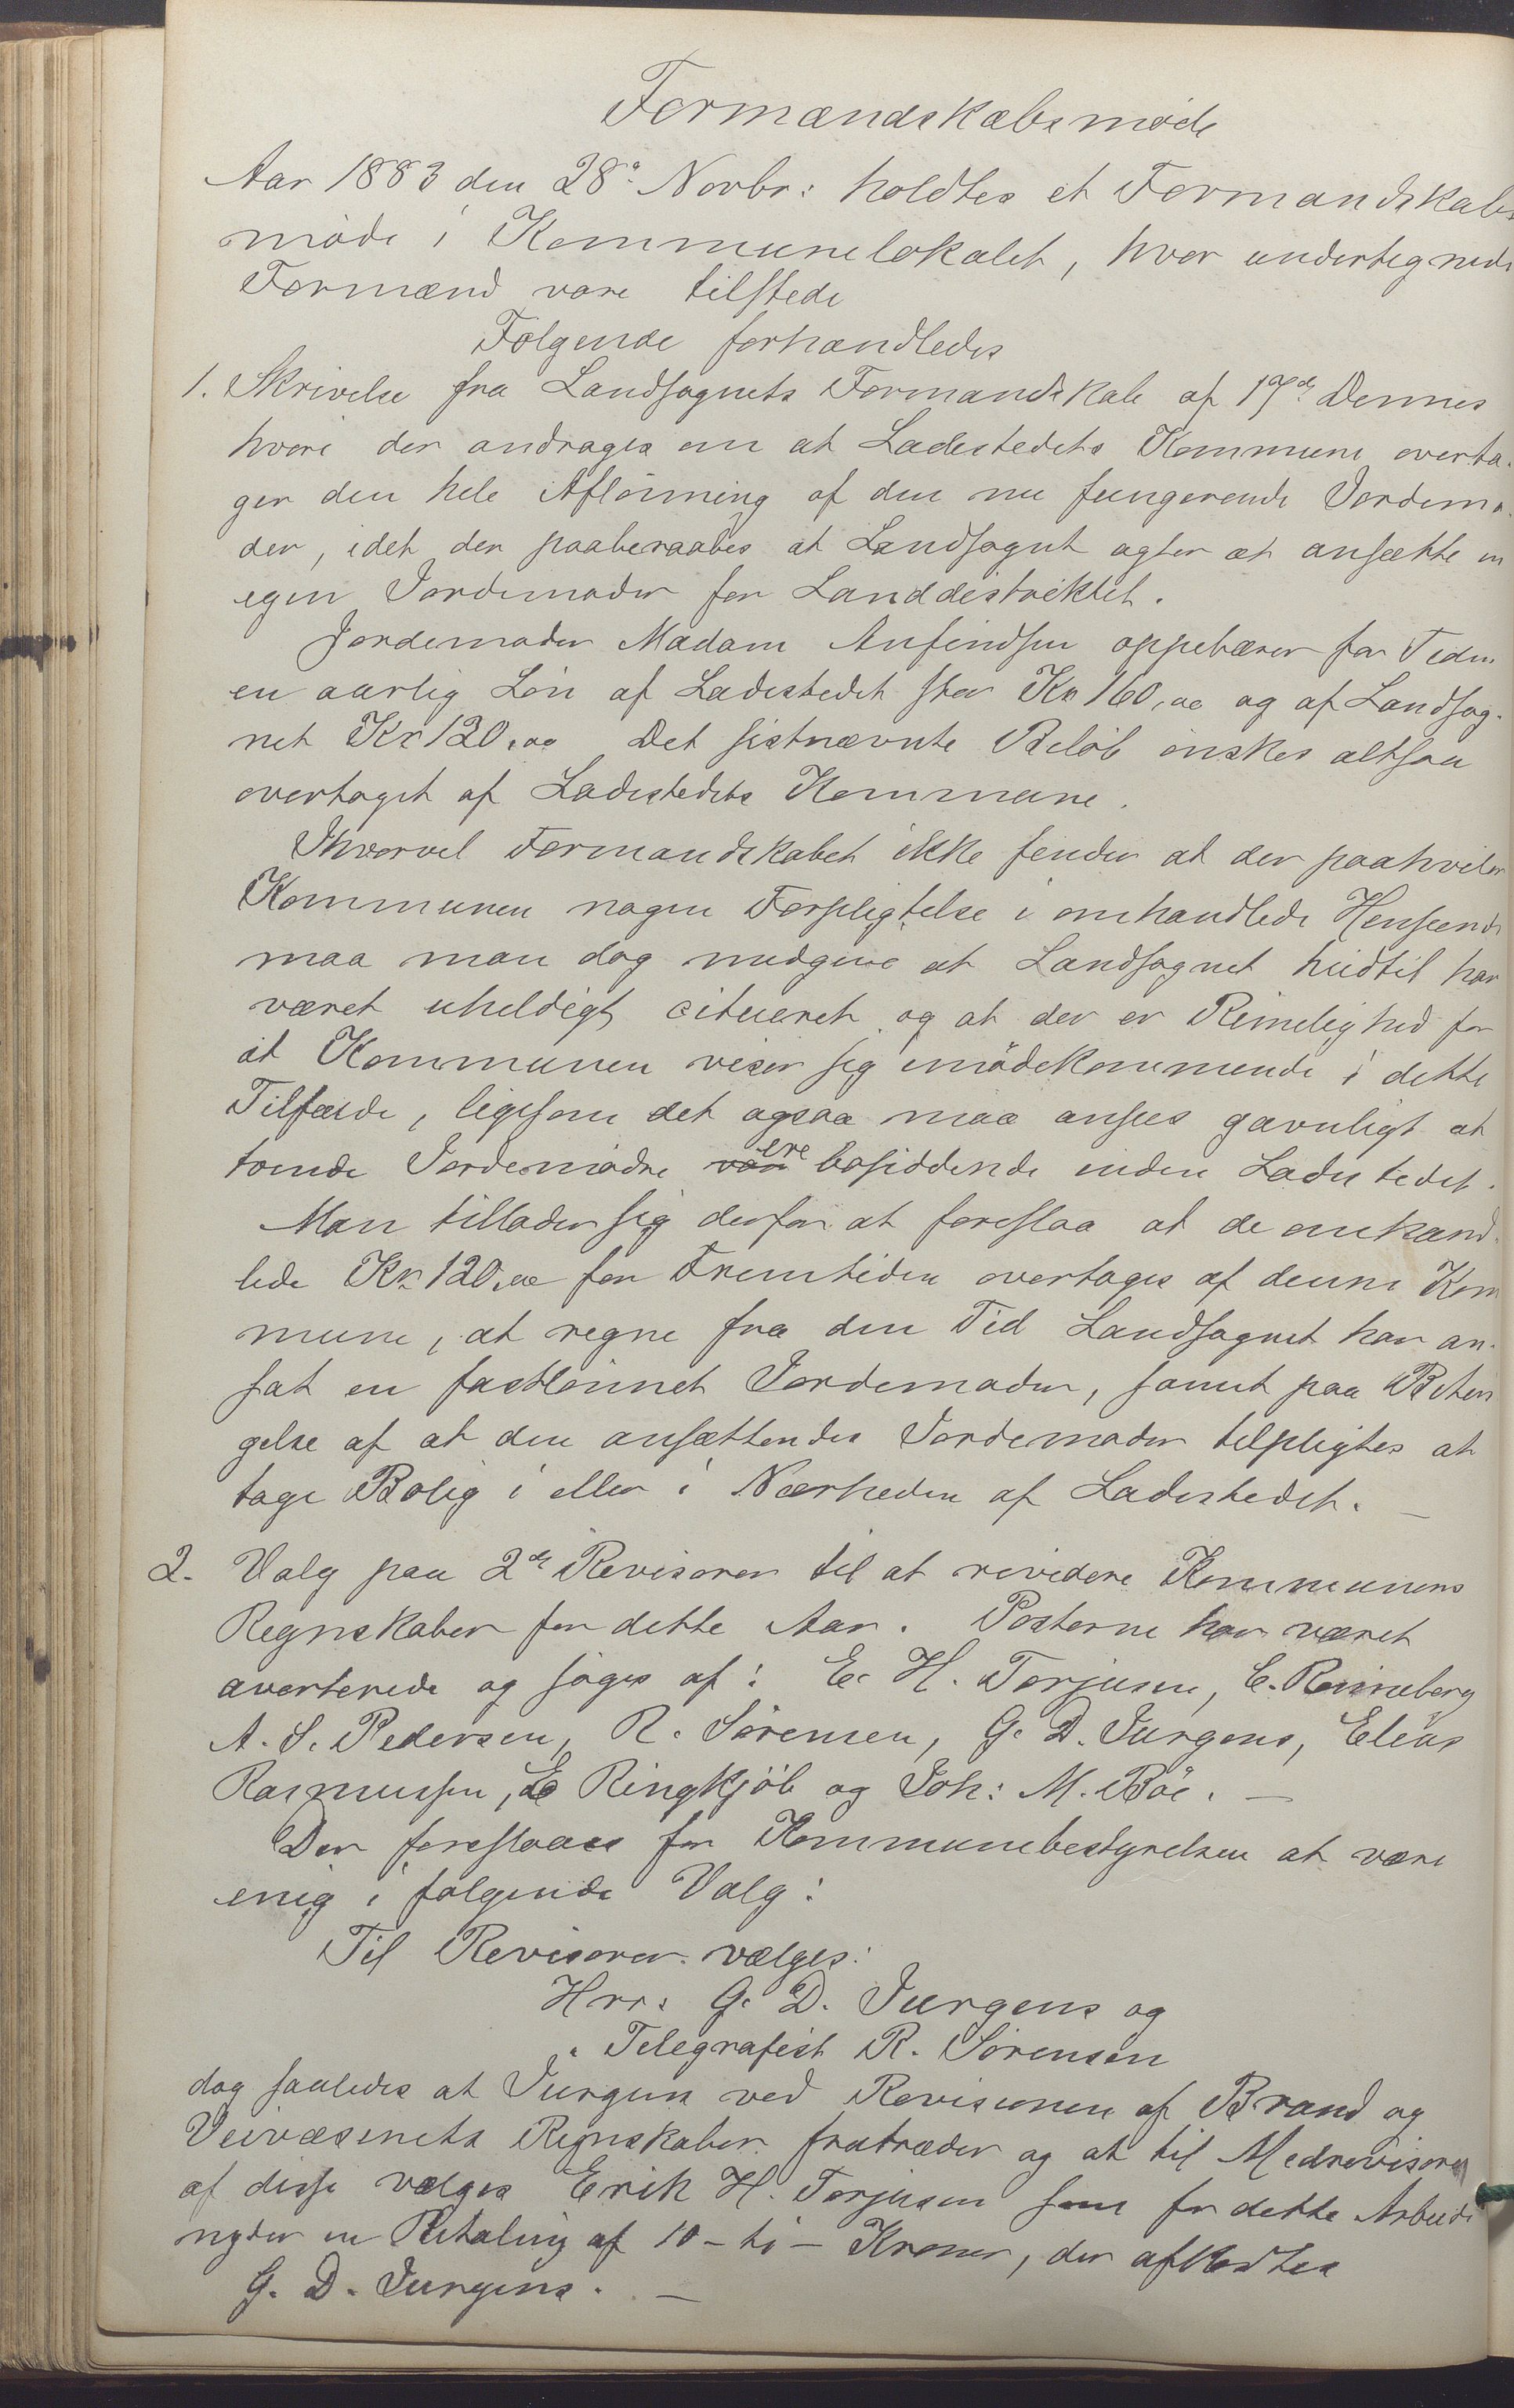 Formandskabsmøde
Aar 1883 den 28de Novbr: holdtes et Formandskabs
møde i Kommunelokalet, hvor undertegnede
Formænd vare tilstede
Følgende forhandledes
1. Skrivelse fra Landsognets Formandskab af 17de Dennes
hvori der andrages om at Ladestedets Kommune overta-
ger den hele Aflønning af den nu fungerende Jordemo-
der, idet der paaberaabes at Landsognet agter at ansætte en
egen Jordemoder for Landdistriktet.
Jordemoder Madam Anfindsen oppebærer for Tiden
en aarlig Løn af Ladestedet stor Kr 160,00 og af Landsog-
net Kr 120,00 Det sistnævnte Beløb ønskes altsaa
overtaget af Ladestedets Kommune.
Ihvorvel Formandskabet ikke finder at der paahviler
Kommunen nogen Forpligtelse i omhandlede Henseende
maa man dog medgive at Landsognet hidtil har
været uheldigt situeret og at der er Rimelighed for
at Kommunen viser sig imødekommende i dette
Tilfælde, ligesom det ogsaa maa ansees gavnligt at
tvende Jordemødre ere bosiddende inden Ladestedet.
Man tillader sig derfor at foreslaa at de omhand-
lede Kr 120,00 for Fremtiden overtages af denne Kom
mune, at regne fra den Tid Landsognet har an-
sat en fastlønnet Jordemoder, samt paa Betin
gelse af at den ansættendes Jordemoder tilpligtes at
tage Bolig i eller i Nærheden af Ladestedet. —
2. Valg paa 2de Revisorer til at revidere Kommunens
Regnskaber for dette Aar. Posterne har været
averterede og søges af: E. H. Torjusen, C. Rønneberg
A. S. Pedersen, R. Sørensen, G. D. Jürgens, Elias
Rasmussen, E Ringkjøb og Joh: M. Bøe. —
Der foreslaaes for Kommunebestyrelsen at være
enig i følgende Valg:
Til Revisorer vælges:
Hrr. G. D. Jurgens og
" Telegrafist R. Sørensen
dog saaledes at Jurgens ved Revisionen af Brand og
Veivæsenets Regnskaber fratræder og at til Medrevisor
af disse vælges Erik H. Torjusen som for dette Arbeide
nyder en Betaling af 10 - ti - Kroner, der afkortes
G. D. Jurgens. —